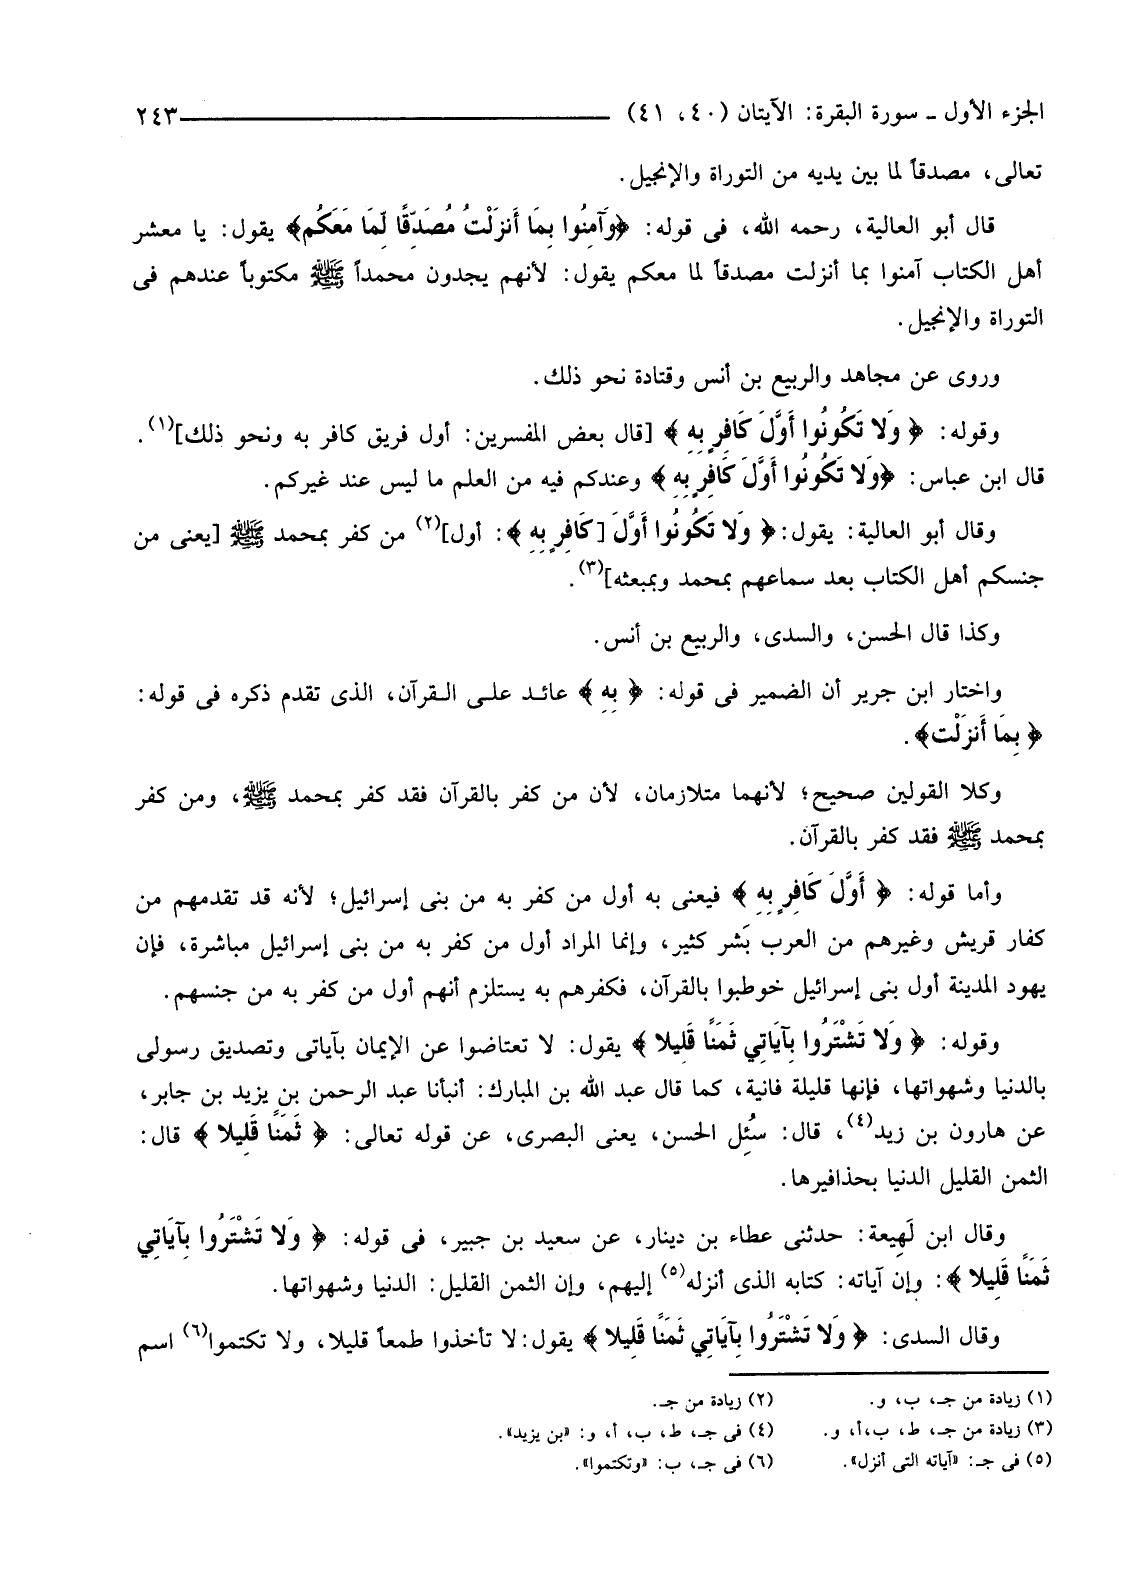 الجزء الأول ـ سورة البقرة: الآيتان (٤٠، ٤١) ٢٤٣
تعالى، مصدقاً لما بين يديه من التوراة والإنجيل.
قال أبو العالية، رحمه الله، فى قوله: ﴿وَآمِنُوا بِمَا أَنزَلْتُ مُصَدِّقًا لِّمَا مَعَكُم﴾ يقول: يا معشر
أهل الكتاب آمنوا بما أنزلت مصدقاً لما معكم يقول: لأنهم يجدون محمداً ﷺ مكتوباً عندهم فى
التوراة والإنجيل.
وروى عن مجاهد والربيع بن أنس وقتادة نحو ذلك.
وقوله: ﴿ وَلا تَكُونُوا أَوَّلَ كَافِرٍ بِهِ ﴾ [قال بعض المفسرين: أول فريق كافر به ونحو ذلك](١).
قال ابن عباس: ﴿وَلا تَكُونُوا أَوَّلَ كَافِرٍ بِهِ ﴾ وعندكم فيه من العلم ما ليس عند غيركم.
وقال أبو العالية: يقول: ﴿ وَلا تَكُونُوا أَوَّلَ [كَافِرٍ بِهِ ﴾: أول](٢) من كفر بمحمد ﷺ [يعنى من
جنسكم أهل الكتاب بعد سماعهم بمحمد وبمبعثه](٣).
وكذا قال الحسن، والسدى، والربيع بن أنس.
واختار ابن جرير أن الضمير فى قوله: ﴿ بِهِ ﴾ عائد على القرآن، الذى تقدم ذكره فى قوله:
﴿ بِمَا أَنزَلْت﴾.
وكلا القولين صحيح؛ لأنهما متلازمان، لأن من كفر بالقرآن فقد كفر بمحمد ﷺ، ومن كفر
بمحمد ﷺ فقد كفر بالقرآن.
وأما قوله: ﴿ أَوَّلَ كَافِرٍ بِهِ ﴾ فيعنى به أول من كفر به من بنى إسرائيل؛ لأنه قد تقدمهم من
كفار قريش وغيرهم من العرب بَشر كثير، وإنما المراد أول من كفر به من بنى إسرائيل مباشرة، فإن
يهود المدينة أول بنى إسرائيل خوطبوا بالقرآن، فكفرهم به يستلزم أنهم أول من كفر به من جنسهم.
وقوله: ﴿ وَلا تَشْتَرُوا بِآيَاتِي ثَمَنًا قَلِيلا ﴾ يقول: لا تعتاضوا عن الإيمان بآياتى وتصديق رسولى
بالدنيا وشهواتها، فإنها قليلة فانية، كما قال عبد الله بن المبارك: أنبأنا عبد الرحمن بن يزيد بن جابر،
عن هارون بن زيد(٤)، قال: سُئِل الحسن، يعنى البصرى، عن قوله تعالى: ﴿ ثَمَنًا قَلِيلا ﴾ قال:
الثمن القليل الدنيا بحذافيرها.
وقال ابن لَهِيعة: حدثنى عطاء بن دينار، عن سعيد بن جبير، فى قوله: ﴿ وَلا تَشْتَرُوا بِآيَاتِي
ثَمَنًا قَلِيلا ﴾: وإن آياته: كتابه الذى أنزله(٥) إليهم، وإن الثمن القليل: الدنيا وشهواتها.
وقال السدى: ﴿ وَلا تَشْتَرُوا بِآيَاتِي ثَمَنًا قَلِيلا ﴾ يقول: لا تأخذوا طمعاً قليلا، ولا تكتموا(٦) اسم
(١) زيادة من جـ، ب، و. (٢) زيادة من جـ.
(٣) زيادة من جـ، ط، ب،أ، و. (٤) فى جـ، ط، ب، أ، و: «بن يزيد».
(٥) فى جـ: «آياته التى أنزل». (٦) فى جـ، ب: «وتكتموا».